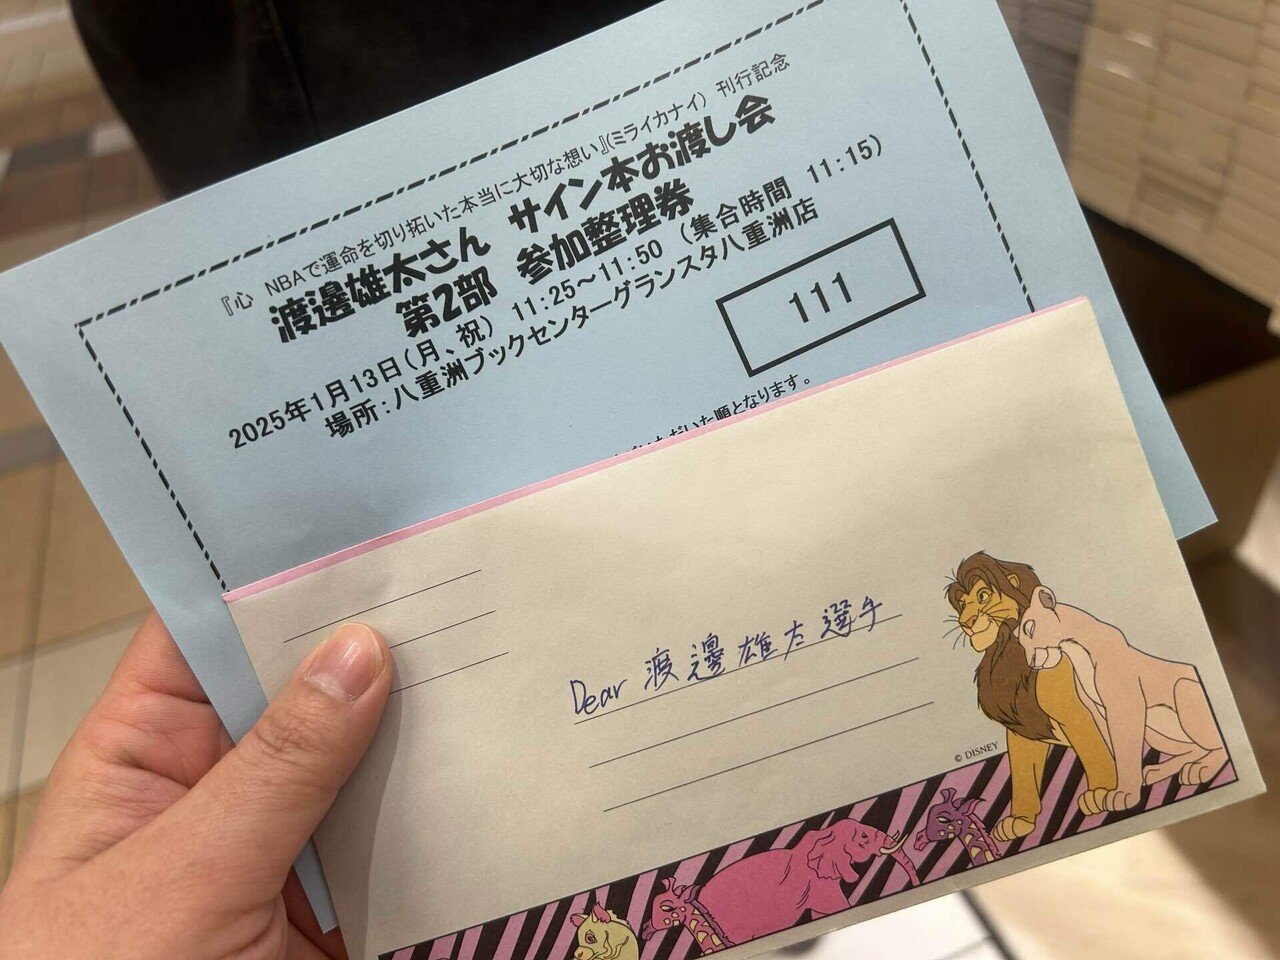 『心 NBAで運命を切り拓いた本当に大切な想い』(ミライカナイ) 刊行記念
渡邊雄太さん サイン本お渡し会
第2部 参加整理券
2025年1月13日(月、祝) 11:25～11:50 (集合時間 11:15)
場所:八重洲ブックセンターグランスタ八重洲店
111
いただいた順となります。
Dear 渡邊雄太選手
© DISNEY